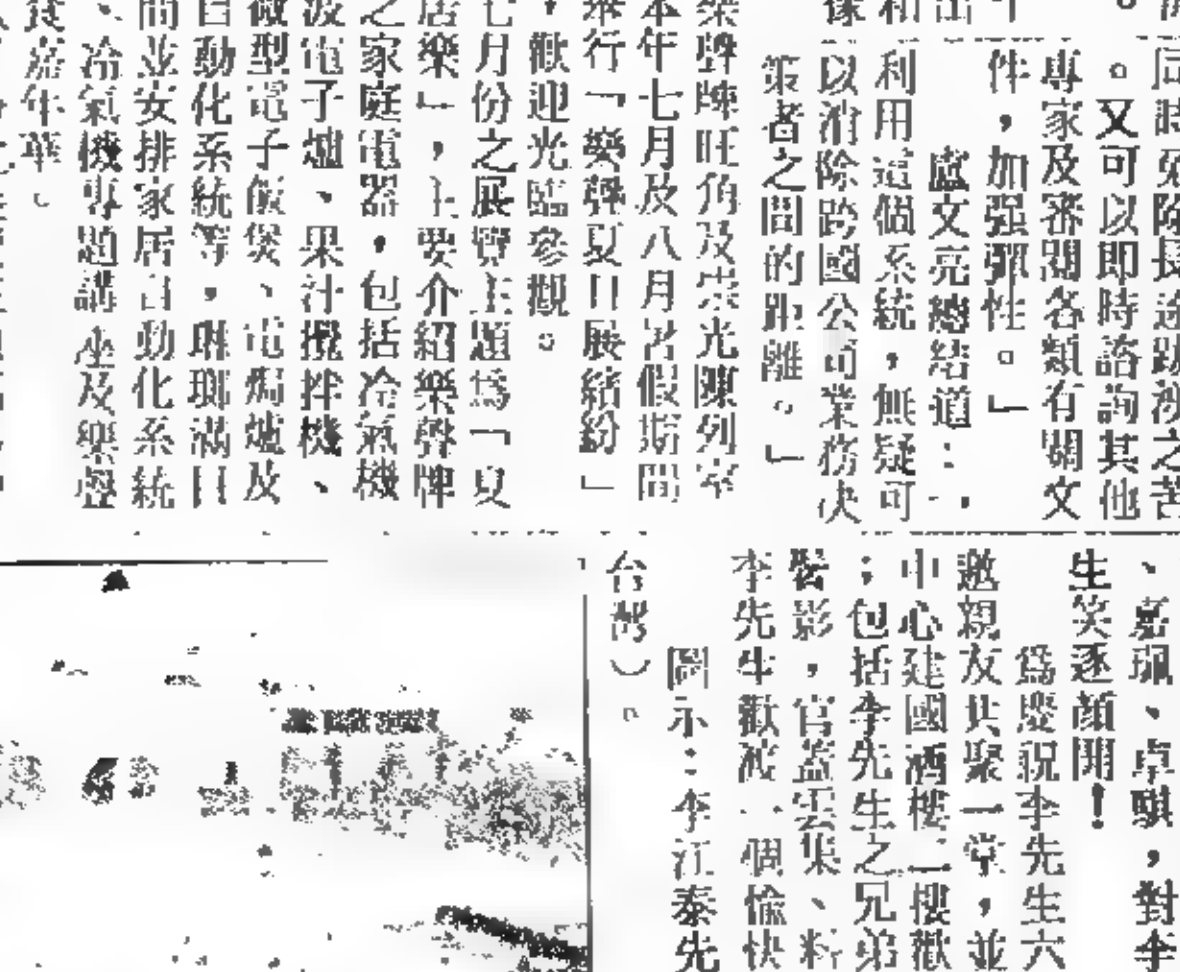 同時免除長途跋涉之苦
。又可以即時諮詢其他
專家及審閱各類有關文
件，加强彈性。」
盧文亮總結道：
利用這個系統，無疑可
以消除跨國公司業務決
策者之間的距離。」
樂聲陳旺角及崇光陳列室
本年七月及八月暑假期間
舉行「樂聲夏日展繽紛」
，歡迎光臨參觀。
七月份之展覽主題爲「夏
居樂」，主要介紹樂聲牌
之家庭電器，包括冷氣機
波電子爐、果汁攪拌機、
微型電子飯煲、電焗爐及
自動化系統等，琳瑯滿目
間並安排家居自動化系統
、冷氣機專題講座及樂聲
嘉年華。
、嘉珮、卓騏，對李
生笑逐顏開！
爲慶祝李先生六
邀親友共聚一堂，並
中心建國酒樓二樓歡
；包括李先生之兄弟
影，官蓋雲集、
李先生歡渡一個愉快
圖示：李江泰先
台灣）。